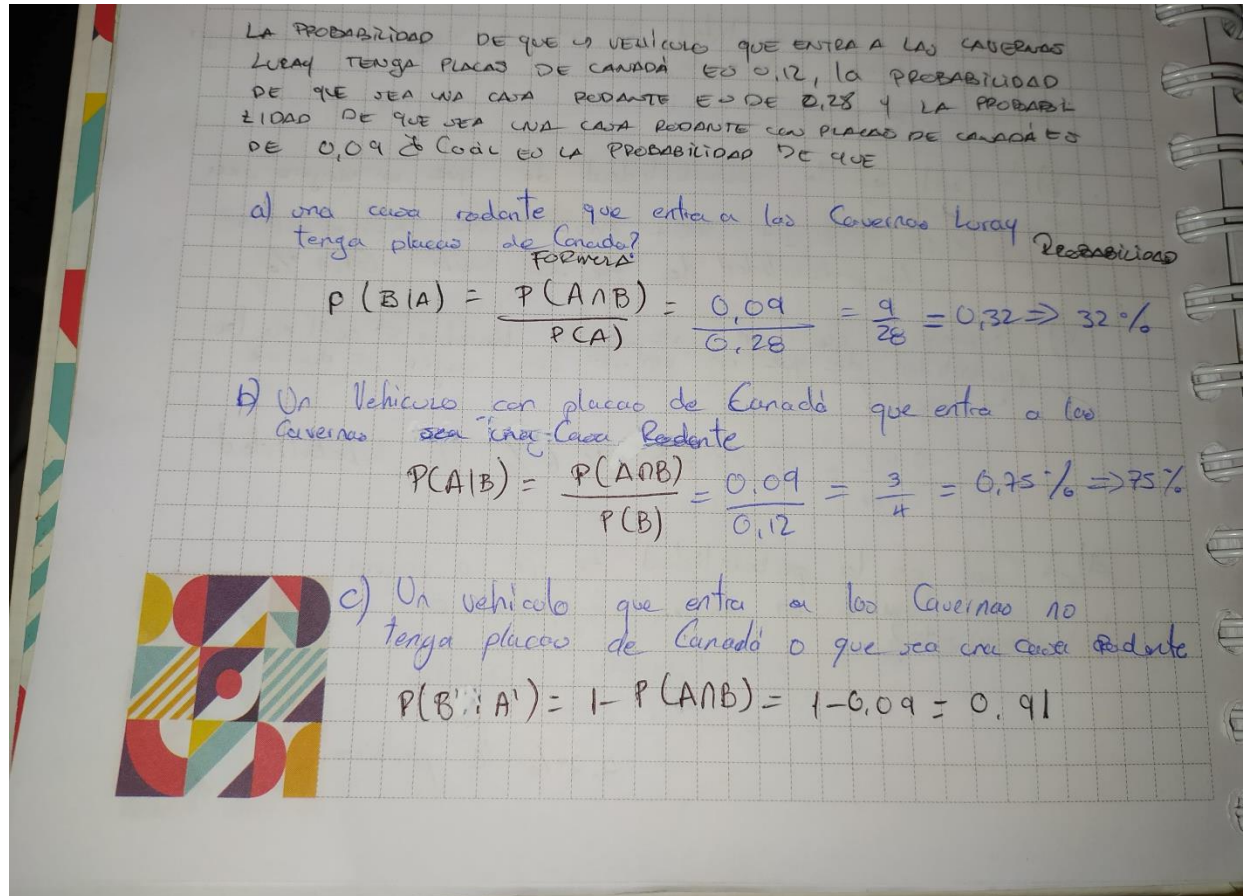 LA PROBABILIDAD DE QUE UN VEHÍCULO QUE ENTRA A LAS CAVERNAS
LURAY TENGA PLACAS DE CANADÁ ES 0,12, la PROBABILIDAD
DE QUE SEA UNA CASA RODANTE ES DE 0,28 y LA PROBABI
LIDAD DE QUE SEA UNA CASA RODANTE CON PLACAS DE CANADÁ ES
DE 0,09 ¿ Cuál ES LA PROBABILIDAD DE QUE
a) una casa rodante que entra a las Cavernas Luray
tenga placas de Canada?
PROBABILIDAD
FORMULA:
P(B|A) = P(A∩B)/P(A) = 0,09/0,28 = 9/28 = 0,32 => 32%
b) Un Vehiculo con placas de Canadá que entra a las
Cavernas sea una Casa Rodante
P(A|B) = P(A∩B)/P(B) = 0.09/0,12 = 3/4 = 0,75% => 75%
c) Un vehiculo que entra a las Cavernas no
tenga placas de Canadá o que sea una casa rodante
P(B' ¡ A') = 1 - P(A∩B) = 1-0,09 = 0.91